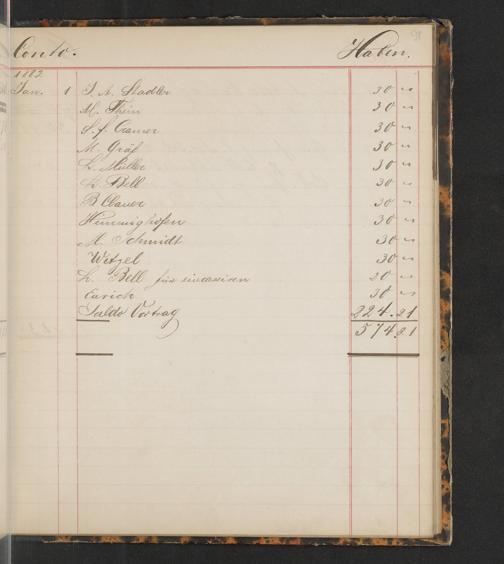 Conto.
Haben.
1882
Jan. 1 J. A. Stadler 30 "
M. Thein 30 "
S. f. Cramer 30 "
M. Gräf 30 "
L. Müller 30 "
L. Bell 30 "
B Clauer 30 "
Hemminghofen 30 "
M. Schmidt 30 "
Wetzel 30 "
L. Bell für 20 "
Emrich 30 "
Saldo Vortrag 224.21
574.21